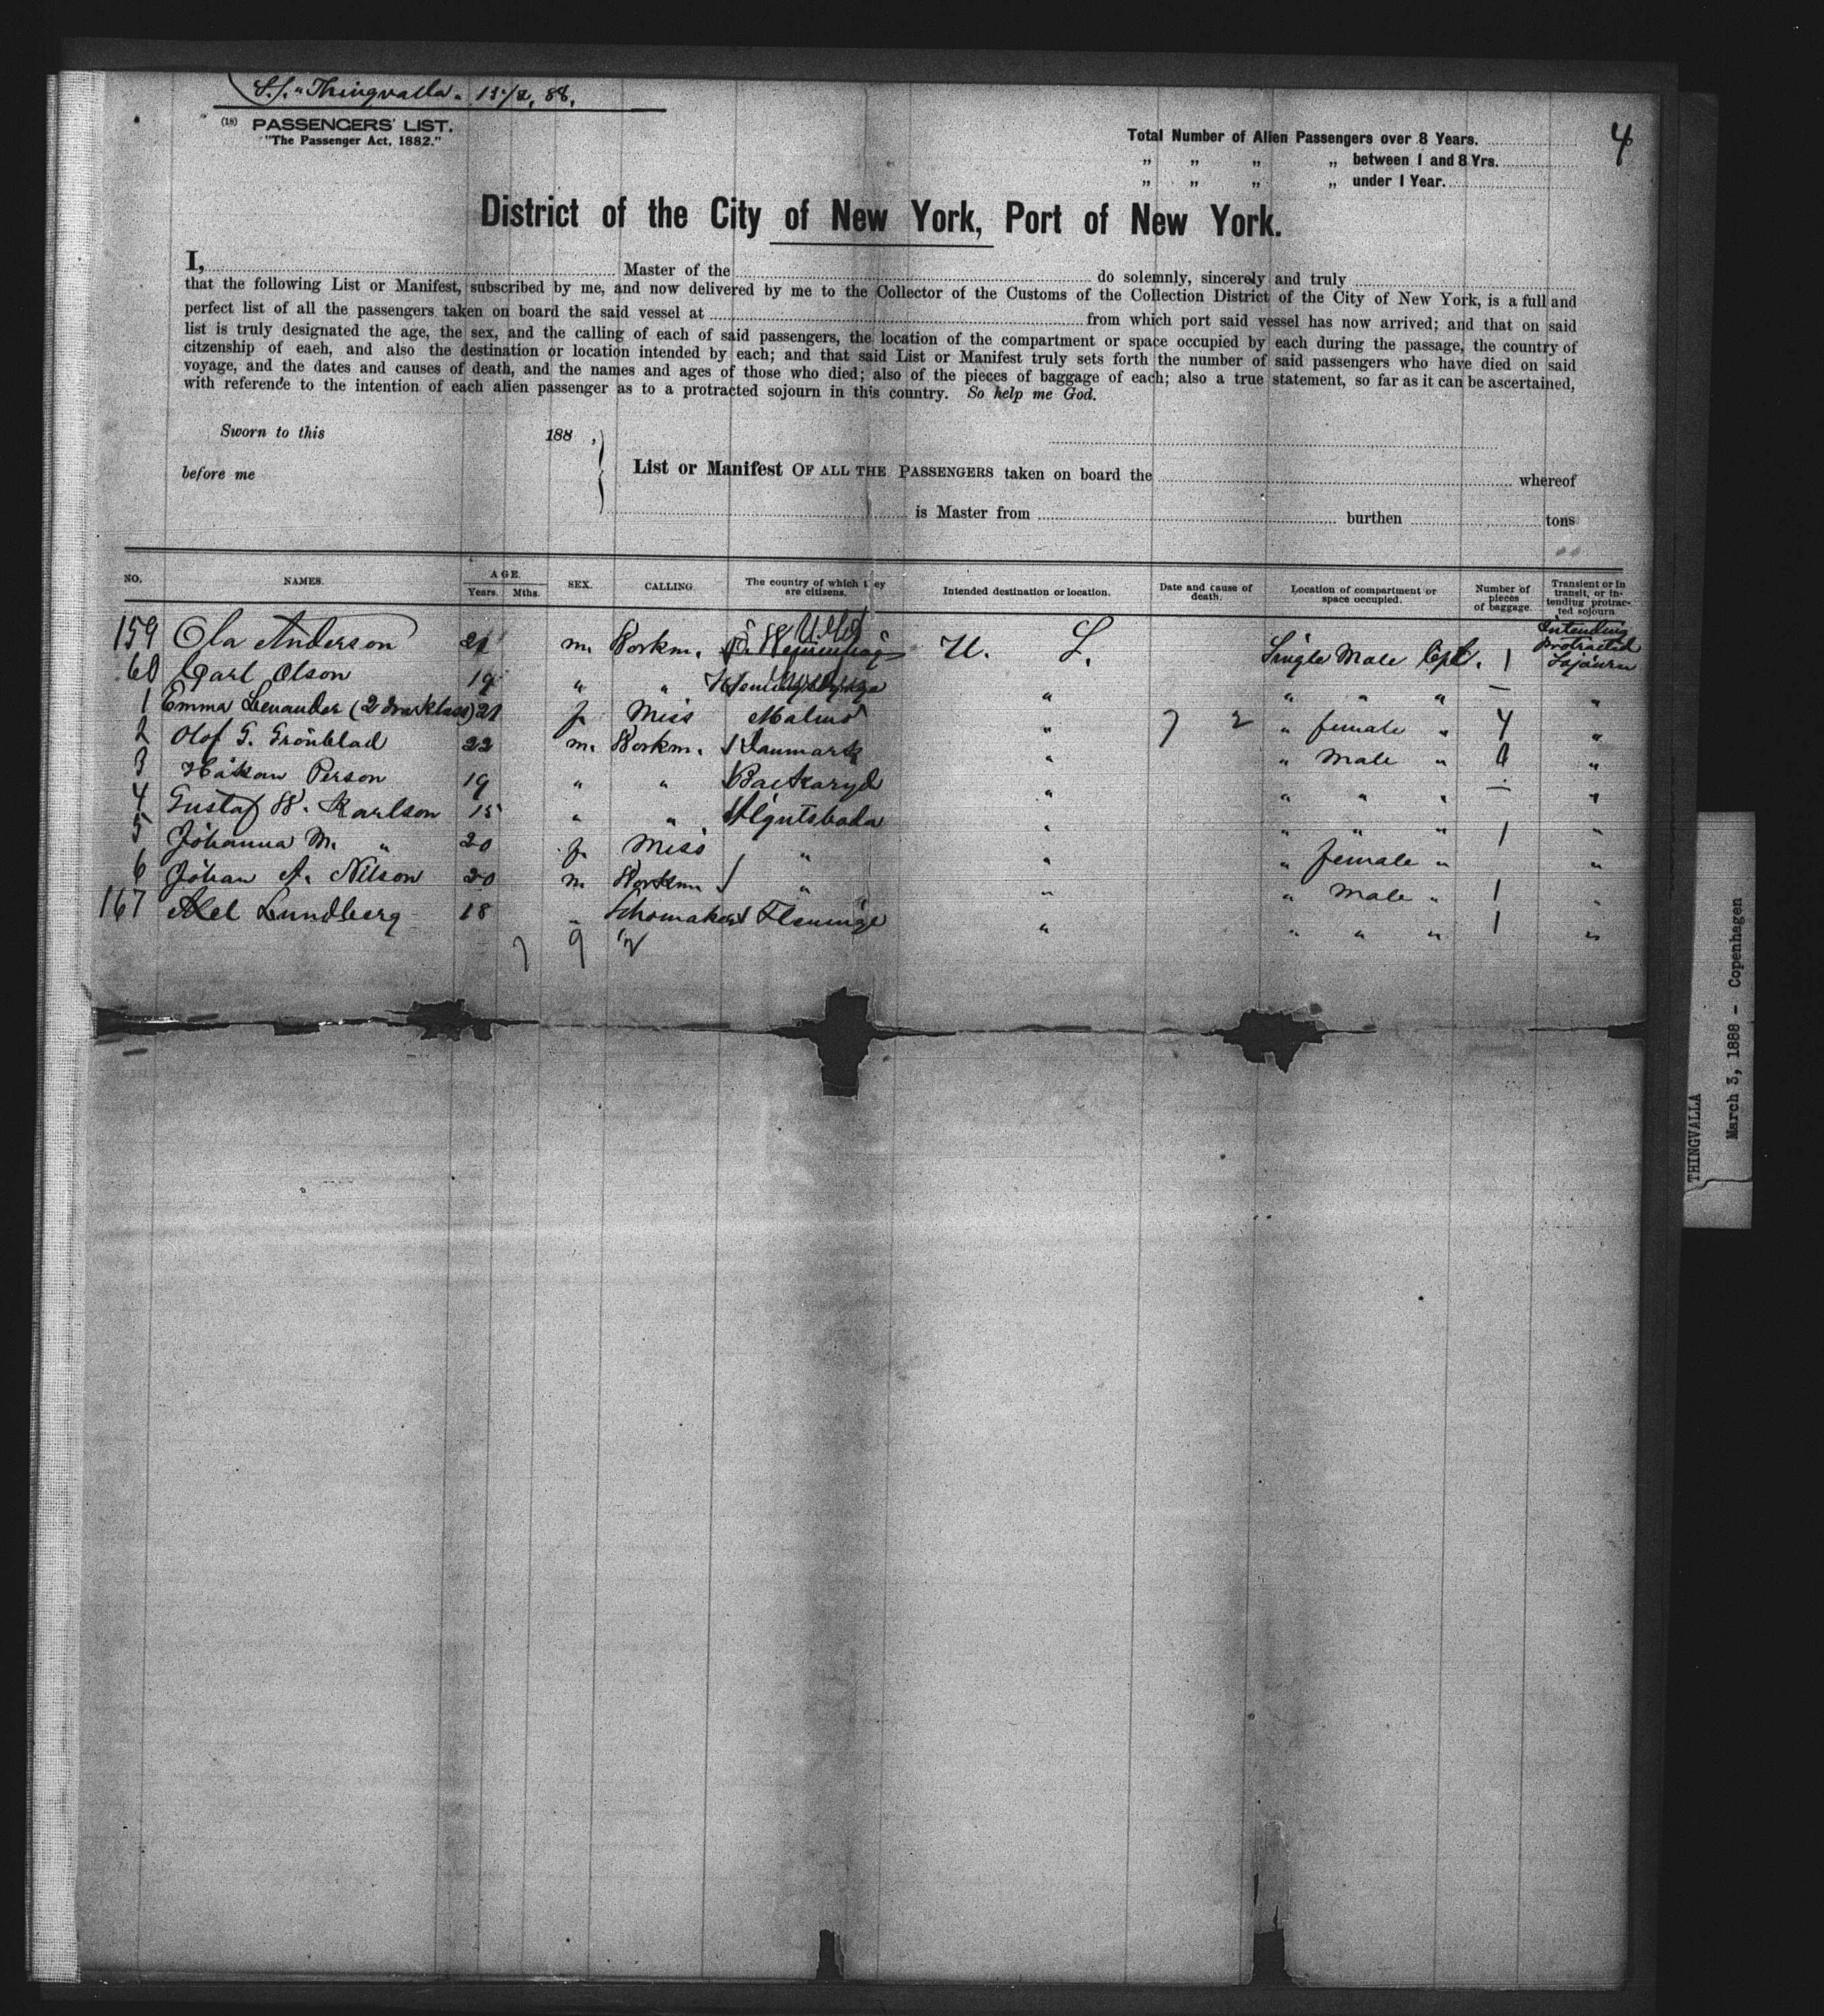 S.S. "Thingvalla" 15/2, 88.
4
(18) PASSENGERS' LIST.
"The Passenger Act, 1882."
Total Number of Alien Passengers over 8 Years.
„ „ „ „ between 1 and 8 Yrs.
„ „ „ „ under 1 Year.
District of the City of New York, Port of New York.
I, Master of the do solemnly, sincerely and truly
that the following List or Manifest, subscribed by me, and now delivered by me to the Collector of the Customs of the Collection District of the City of New York, is a full and
perfect list of all the passengers taken on board the said vessel at from which port said vessel has now arrived; and that on said
list is truly designated the age, the sex, and the calling of each of said passengers, the location of the compartment or space occupied by each during the passage, the country of
citzenship of eaeh, and also the destination or location intended by each; and that said List or Manifest truly sets forth the number of said passengers who have died on said
voyage, and the dates and causes of death, and the names and ages of those who died; also of the pieces of baggage of each; also a true statement, so far as it can be ascertained,
with reference to the intention of each alien passenger as to a protracted sojourn in this country. So help me God.
Sworn to this 188 ,
before me
List or Manifest OF ALL THE PASSENGERS taken on board the whereof
is Master from burthen tons
NO. NAMES. AGE. Years. Mths. SEX. CALLING The country of which they are citizens. Intended destination or location. Date and cause of death. Location of compartment or space occupied. Number of pieces of baggage. Transient or in transit, or intending protracted sojourn
159 Ola Anderson 21 m. Workm. U. S. Single Male Cpt. 1 Intending Protracted Sojourn
60 Carl Olson 19 " " " " " " — "
1 Emma Lenander (2den klass) 21 f Miss Malmö " " female " 4 "
2 Olof G. Grönblad 22 m. Workm. Danmark " " Male " "
3 Håkan Person 19 " " Backaryd " " " " — "
4 Gustaf W. Karlson 15 " " Algutsboda " " " " 1 "
5 Johanna M. " 20 f Miss " " " female " "
6 Johan A. Nilson 20 m Workm " " " Male " 1 "
167 Axel Lundberg 18 " Schomaker Fleninge " " " " 1 "
THINGVALLA
March 3, 1888 - Copenhagen